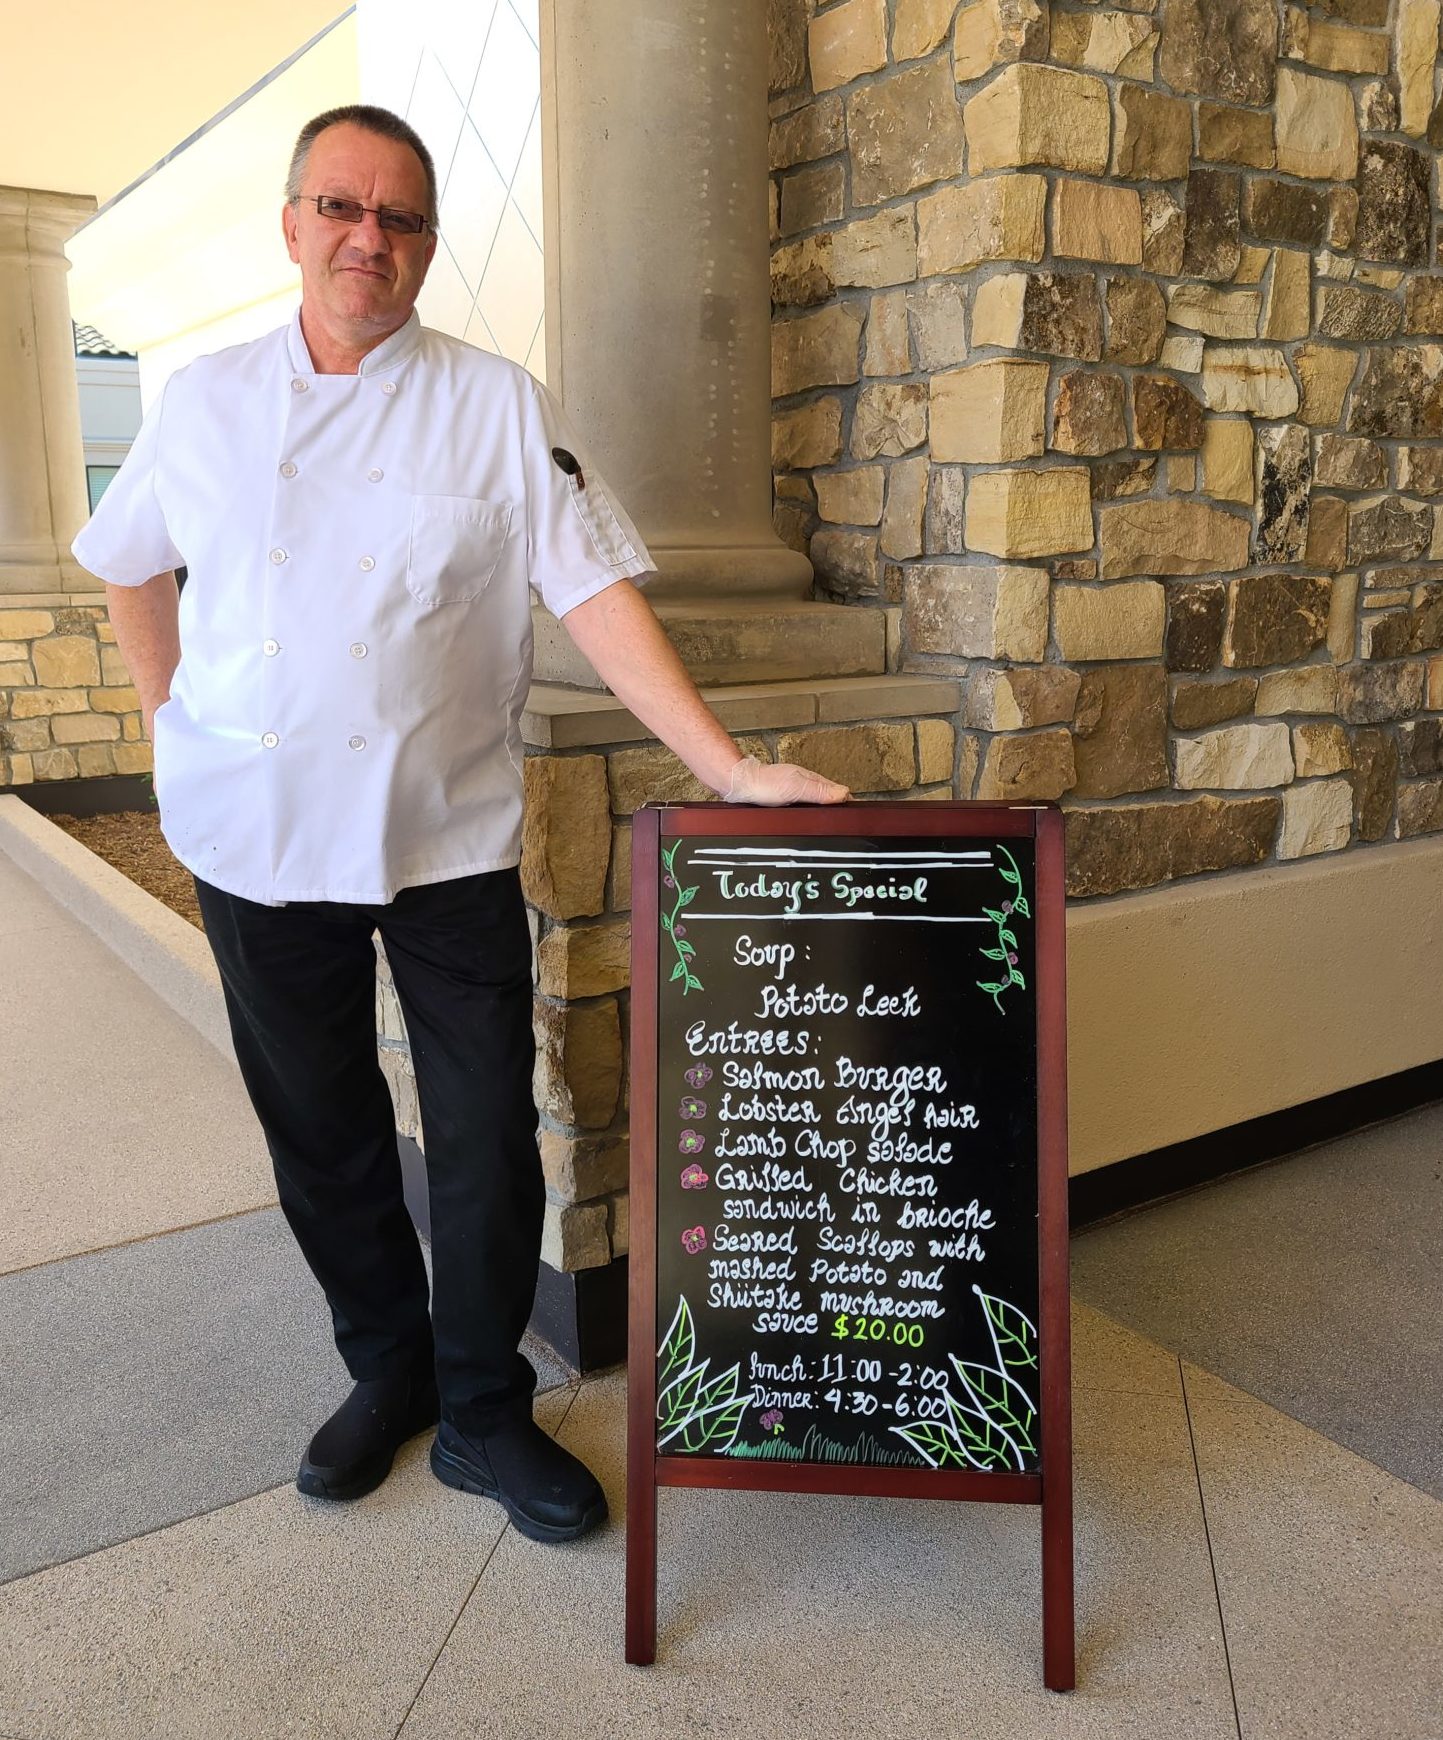 Today's Special
Soup:
Potato Leek
Entrees:
Salmon Burger
Lobster Angel hair
Lamb Chop salade
Grilled Chicken
sandwich in brioche
Seared Scallops with
mashed Potato and
Shiitake mushroom
sauce $20.00
lunch: 11:00 -2:00
Dinner: 4:30-6:00